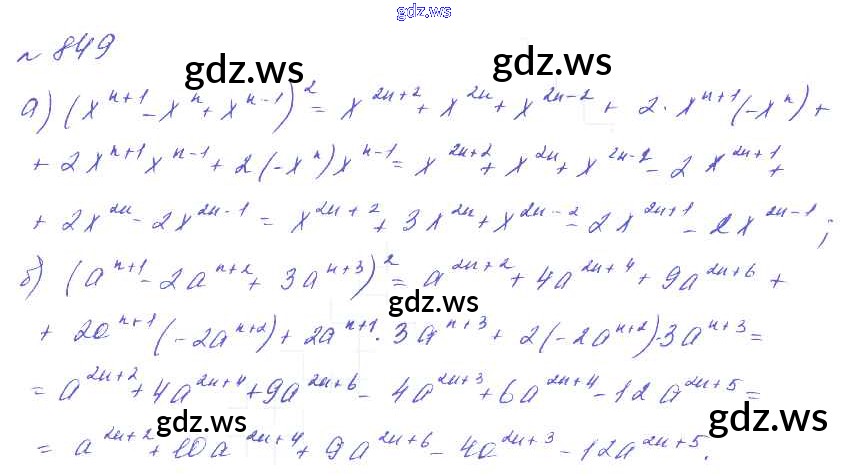 gdz.ws
№ 849
gdz.ws gdz.ws
а) (x^{n+1} - x^n + x^{n-1})^2 = x^{2n+2} + x^{2n} + x^{2n-2} + 2·x^{n+1}(-x^n) +
+ 2x^{n+1}x^{n-1} + 2(-x^n)x^{n-1} = x^{2n+2} + x^{2n} + x^{2n-2} - 2x^{2n+1} +
+ 2x^{2n} - 2x^{2n-1} = x^{2n+2} + 3x^{2n} + x^{2n-2} - 2x^{2n+1} - 2x^{2n-1};
б) (a^{n+1} - 2a^{n+2} + 3a^{n+3})^2 = a^{2n+2} + 4a^{2n+4} + 9a^{2n+6} +
gdz.ws
+ 2a^{n+1}(-2a^{n+2}) + 2a^{n+1}·3a^{n+3} + 2(-2a^{n+2})·3a^{n+3} =
= a^{2n+2} + 4a^{2n+4} + 9a^{2n+6} - 4a^{2n+3} + 6a^{2n+4} - 12a^{2n+5} =
gdz.ws gdz.ws
= a^{2n+2} + 10a^{2n+4} + 9a^{2n+6} - 4a^{2n+3} - 12a^{2n+5}.